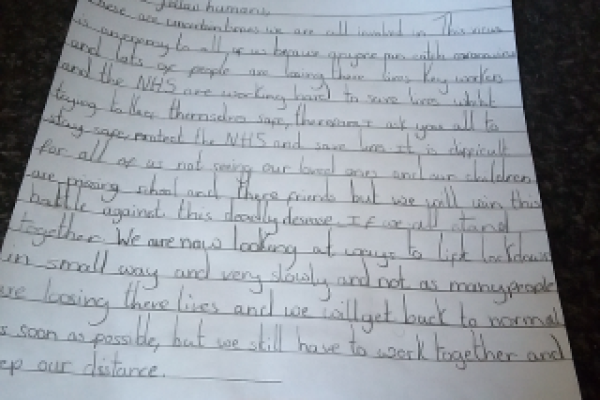 fellow humans,
These are uncertain times we are all involved in This virus
is an enemy to all of us because anyone can catch coronavirus
and lots of people are losing there lives Key workers
and the NHS are working hard to save lives whilst
trying to keep themselves safe, therefore I ask you all to
stay safe, protect the NHS and save lives It is difficult
for all of us not seeing our loved ones and our children
are missing school and there friends but we will win this
battle against this deadly desease. If we all stand
together. We are now looking at ways to lift lockdown
in small way and very slowly and not as many people
are loosing there lives and we will get back to normal
as soon as possible, but we still have to work together and
keep our distance.